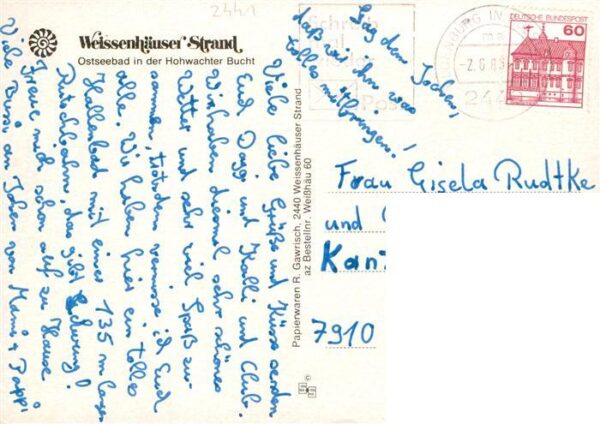 2441
Weissenhäuser Strand
Ostseebad in der Hohwachter Bucht
Viele liebe Grüße und Küsse senden
Euch Daggi und Kalli und Club.
Wir haben diesmal sehr schönes
Wetter und sehr viel Spaß zu-
sammen, trotzdem vermisse ich Euch
alle. Wir haben hier ein tolles
Hallenbad mit einer 135 m langen
Rutschbahn, das gibt Schwung!
Freue mich schon auf zu Hause
Viele Bussi an Jochen von Mami & Pappi
Papierwaren R. Gawrisch, 2440 Weissenhäuser Strand
az Bestellnr. Weißhäu 60
Sag dem Jochen,
daß wir ihm was
tolles mitbringen!
Schreib
mal
wieder
Post
BURG IN
-2.6.8
244
DEUTSCHE BUNDESPOST
60
Frau Gisela Rudtke
und
Kan
7910